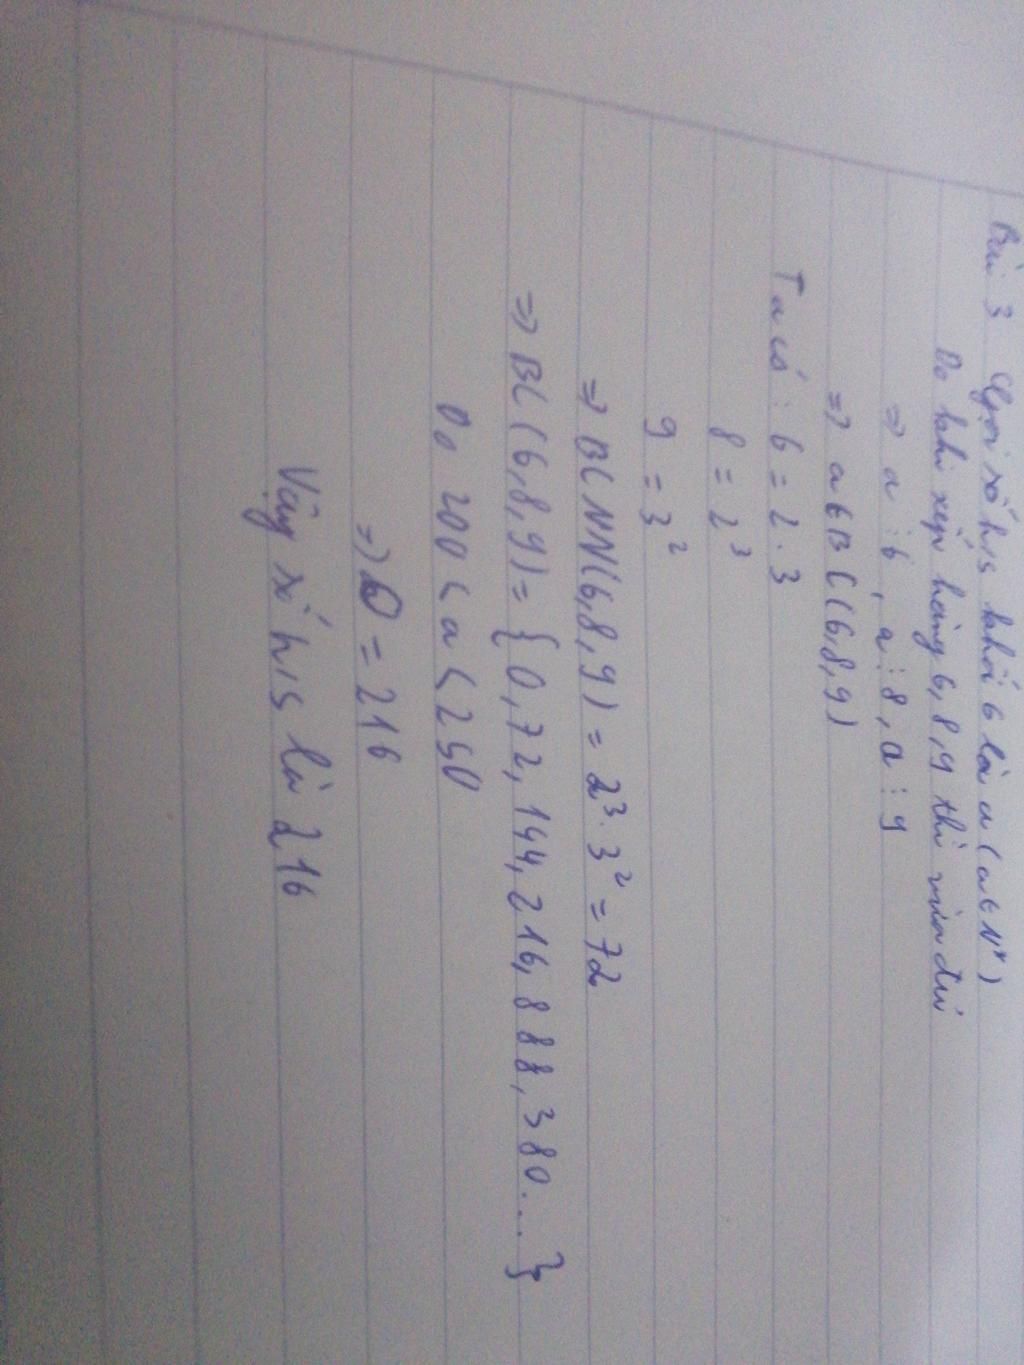 Bài 3 Gọi số h/s khối 6 là a (a∈N*)
Do khi xếp hàng 6, 8, 9 thì vừa đủ
=> a ⋮ 6, a ⋮ 8, a ⋮ 9
=> a ∈ BC(6,8,9)
Ta có: 6 = 2.3
8 = 2³
9 = 3²
=> BCNN(6,8,9) = 2³.3² = 72
=> BC(6,8,9) = {0,72,144,216,888,380...}
Do 200 < a < 250
=> a = 216
Vậy số h/s là 216